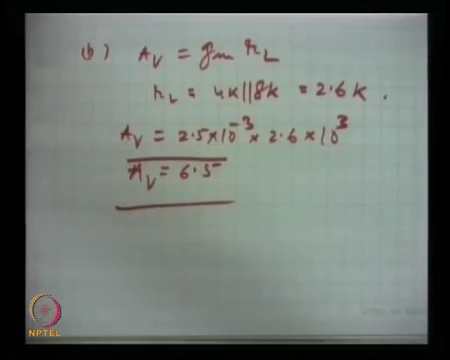 (b) AV = gm rL
rL = 4k||8k = 2.6k.
AV = 2.5×10⁻³ × 2.6×10³
AV = 6.5
NPTEL